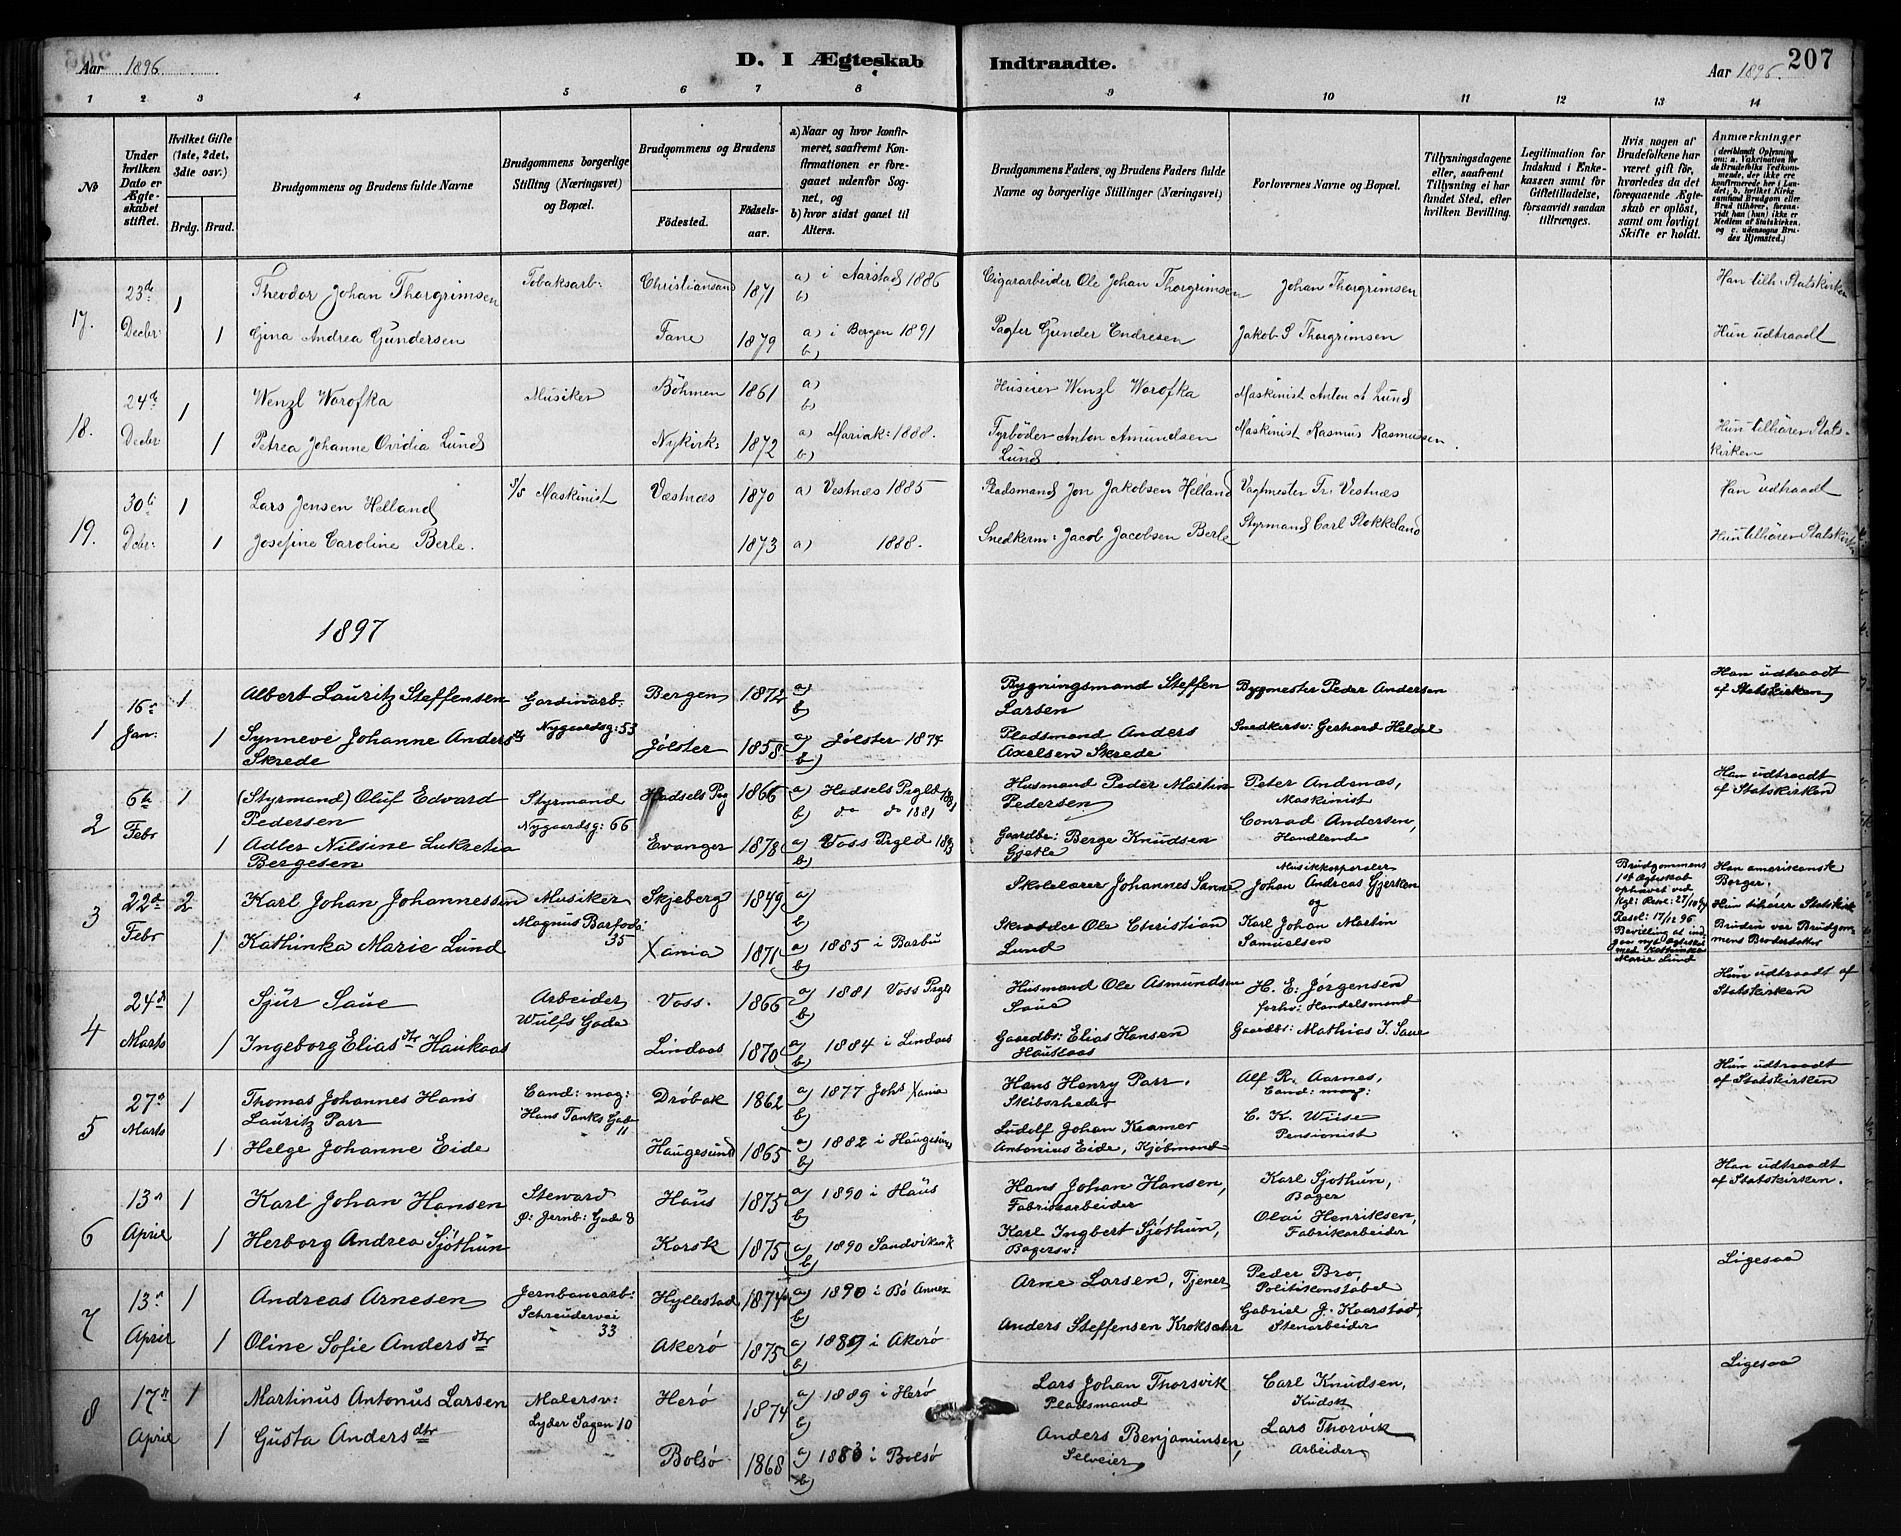 Aar 1896
D. I Ægteskab Indtraadte.
Aar 1896.
207
1 2 3 4 5 6 7 8 9 10 11 12 13 14
No
Under hvilken Dato er Ægteskabet stiftet.
Hvilket Gifte (1ste, 2det, 3die osv.)
Brdg. Brud.
Brudgommens og Brudens fulde Navne
Brudgommens borgerlige Stilling (Næringsvei) og Bopæl.
Brudgommens og Brudens
Fødested.
Fødselsaar.
a) Naar og hvor konfirmeret, saafremt Konfirmationen er foregaaet udenfor Sognet, og
b) hvor sidst gaaet til Alters.
Brudgommens Faders, og Brudens Faders fulde Navne og borgerlige Stillinger (Næringsvei)
Forlovernes Navne og Bopæl.
Tillysningsdagene eller, saafremt Tillysning ei har fundet Sted, efter hvilken Bevilling.
Legitimation for Indskud i Enkekassen samt for Giftetilladelse, forsaavidt saadan tiltrænges.
Hvis nogen af Brudefolkene har været gift før, hvorledes da det foregaaende Ægteskab er opløst, samt om lovligt Skifte er holdt.
Anmærkninger (deriblandt Oplysning om: a. Vakcination for de Brudefolks Vedkommende, der ikke ere konfirmerede her i Landet; b. hvilket Kirkesamfund Brudgom eller Brud tilhører, forsaavidt han (hun) ikke er Medlem af Statskirken, og c. udensogns Brudes Hjemsted.)
17. 23de Decbr: 1 Theodor Johan Thorgrimsen Tobaksarb: Christiansand 1871 a) i Aarstad 1886 b) Cigararbeider Ole Johan Thorgrimsen Johan Thorgrimsen Han tilh: Statskirken
1 Gina Andrea Gundersen Fane 1879 a) i Bergen 1891 b) Pagter Gunder Endresen Jakob S Thorgrimsen Hun udtraadt
18. 24de Decbr 1 Wenzl Worofka Musiker Böhmen 1861 a) b) Huseier Wenzl Worofka Maskinist Anton A Lund
1 Petrea Johanne Ovidia Lund Nykirk: 1872 a) Mariak: 1888. b) Fyrbøder Anton Amundsen Lund Maskinist Rasmus Rasmussen Hun tilhører Statskirken
19. 30te Dcbr: 1 Lars Jensen Helland S/S Maskinist Vestnæs 1870 a) Vestnæs 1885 Pladsmand Jon Jakobsen Helland Vagtmester Fr. Vestnæs Han udtraadt
1 Josefine Caroline Berle. 1873 a) 1888. Snedkerm: Jacob Jacobsen Berle Styrmand Carl Stokkeland Hun tilhører Statskirken
1897
1 16de Jan: 1 Albert Lauritz Steffensen Gardinarb. Nygaardsg: 53 Bergen 1872 a) b) Bygningsmand Steffen Larsen Bygmester Peder Andersen Han udtraadt af Statskirken
1 Synneve Johanne Andersdtr Skrede Jølster 1858 a) Jølster 1874 b) Pladsmand Anders Axelsen Skrede Snedkersv: Gerhard Heldal
2 6te Febr 1 (Styrmand) Oluf Edvard Pedersen Styrmand Nygaardsg: 66 Hadsels Prg 1866 a) Hadsels Prgld 1881 b) do do 1881 Husmand Peder Martin Pedersen Peter Andenæs, Maskinist Han udtraadt af Statskirken
1 Adler Nilsine Lukretia Bergesen Evanger 1878 a) Voss Prgld 1893 b) Gaardbr: Berge Knudsen Gjetle Conrad Andersen, Handlende
3 22de Febr 2 Karl Johan Johannessen Musiker Magnus Barfods: 35 Skjeberg 1849 a) b) Skolelærer Johannes Sanne Musikkorporaler Johan Andreas Gjerken og Han amerikansk Borger.
1 Kathinka Marie Lund Xania 1871 a) 1885 i Barbu b) Skrædder Ole Christian Lund Karl Johan Martin Samuelsen
Brudgommens 1st Ægteskab ophævet ved Kgl: Resol: 17/12 96 Bevilling at indgaa nyt Ægtesk: med Kathinka Marie Lund
Hun tilhører Statskirk Bruden var Brudgommens Broderdatter
4 24de Marts 1 Sjur Saue Arbeider Wulfs Gade Voss. 1866 a) 1881 Voss Prgld b) Husmand Ole Asmundsen Saue H. E. Jørgensen forhv: Handelsmand Hun udtraadt af Statskirken
1 Ingeborg Eliasdtr Haukaas Lindaas 1870 a) 1884 i Lindaas b) Gaardbr: Elias Hansen Haukaas Gaardbr: Mathias J. Saue
5 27de Marts 1 Thomas Johannes Hans Lauritz Parr Cand: mag: Hans Tanks Gade 11 Drøbak 1862 a) 1877 Johs Xania b) Hans Henry Parr. Skibsrheder Alf R. Aarnes, Cand: mag: Hun udtraadt af Statskirken
1 Helge Johanne Eide Haugesund 1865 a) 1882 i Haugesund b) Ludolf Johan Kramer Antonius Eide, Kjøbmand C. K. Wiise Pensionist
6 13de April 1 Karl Johan Hansen Steward Ø: Jernb: Gade 8 Haus 1875 a) 1890 i Haus b) Hans Johan Hansen, Fabrikarbeider Karl Sjøthun, Bager Han udtraadt af Statskirken.
1 Herborg Andrea Sjøthun Korsk 1875 a) 1890 Sandvikenk b) Karl Ingbert Sjøthun, Bagersv: Olai Henriksen, Fabrikarbeider
7 13de April 1 Andreas Arnesen Jernbanearb: Schreudervei 33 Hyllestad 1874 a) 1890 i Bø Annex b) Arne Larsen, Tjener Peder Bro, Politikonstabel Ligesaa
1 Oline Sofie Andersdtr Akerø 1875 a) 1889 i Akerø b) Anders Steffensen Gabriel J. Kaarstad, Stenarbeider
8 17de April 1 Martinus Antonus Larsen Malersv: Lyder Sagen 10 Herø 1874 a) 1889 i Herø b) Lars Johan Thorsvik Pladsmand Carl Knudsen, Kudsk Ligesaa
1 Gusta Andersdtr Bolsø 1868 a) 1883 i Bolsø b) Anders Benjaminsen, Selveier Lars Thorvik Arbeider